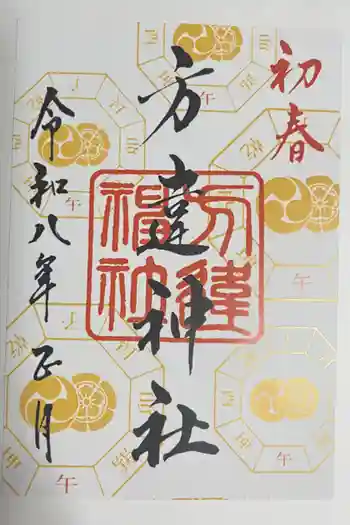 初春
方違神社
令和八年正月
方違
神社
午
午
午
午